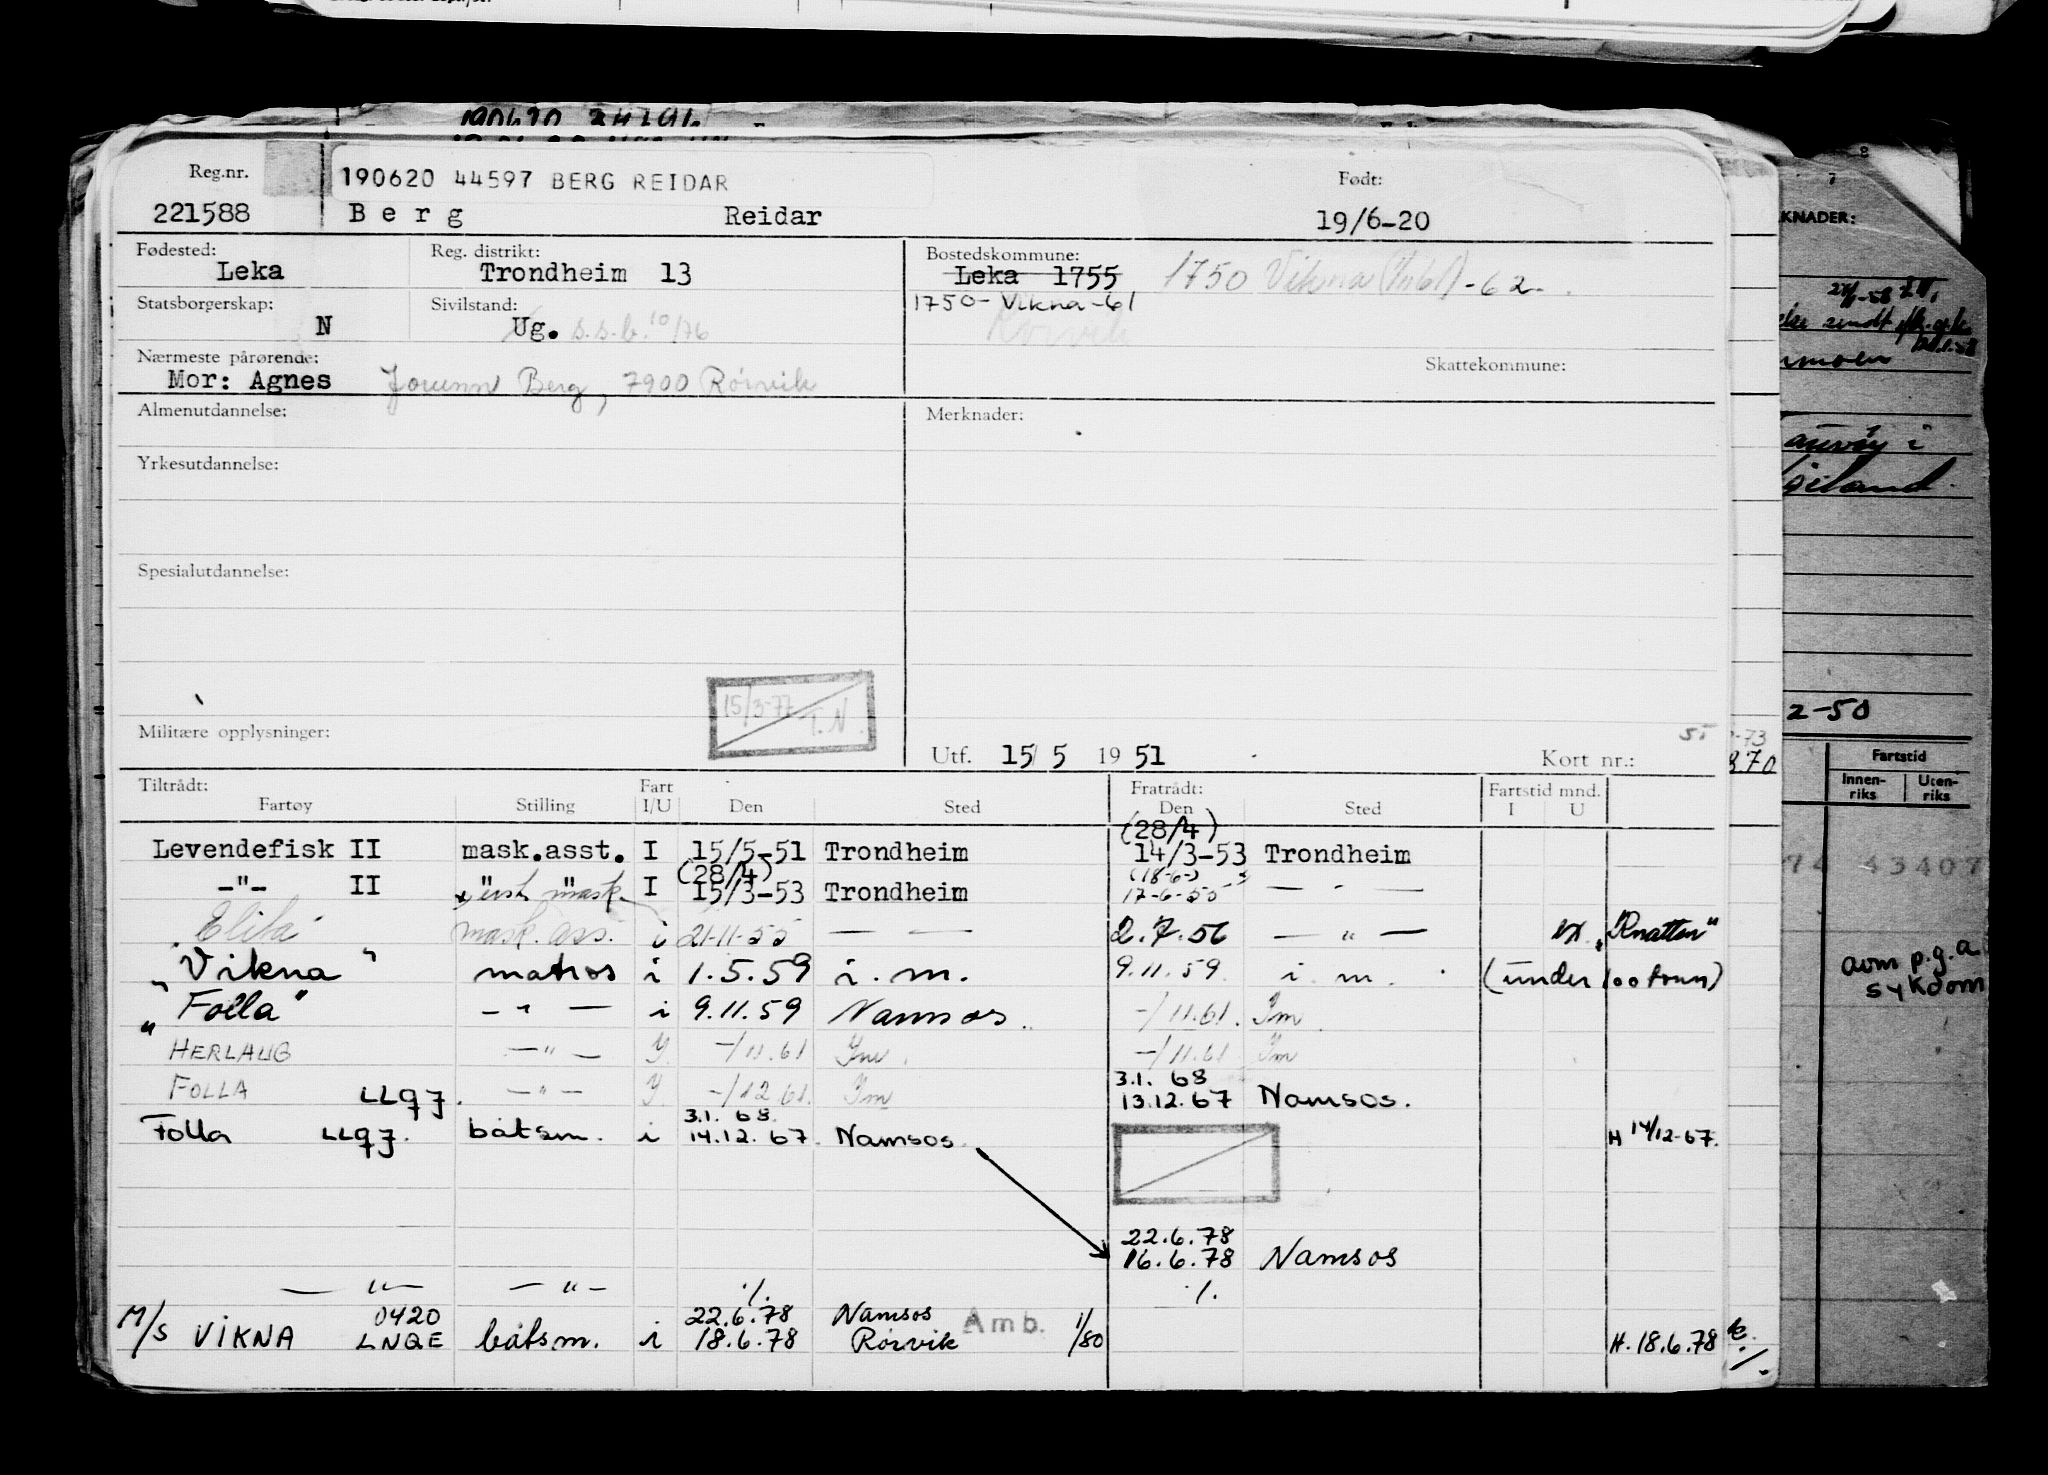 190620 44597 BERG REIDAR
Reg.nr. Født:
221588 Berg Reidar 19/6-20
Fødested: Reg. distrikt: Bostedskommune:
Leka Trondheim 13 Leka 1755 1750 Vikna -62
Statsborgerskap: Sivilstand: 1750-Vikna-61
N Ug. s.s.b. 10/76 Rørvik
Nærmeste pårørende: Skattekommune:
Mor: Agnes Jorunn Berg, 7900 Rørvik
Almenutdannelse: Merknader:
Yrkesutdannelse:
Spesialutdannelse:
15/3-77 T.N.
Militære opplysninger: Utf. 15/5 1951 Kort nr.:
Tiltrådt: Fratrådt: Fartstid mnd.
Fartøy Stilling Fart I/U Den Sted Den Sted I U
(28/4)
Levendefisk II mask.asst. I 15/5-51 Trondheim 14/3-53 Trondheim
(28/4) (18-6-)
-"- II I 15/3-53 Trondheim 17-6-55 — " —
mask. ass. i 21-11-55 — — 2.7.56 — " —
"Vikna" matros i 1.5.59 i. m. 9.11.59 i. m. (under 100 tonn)
"Folla" — " — i 9.11.59 Namsos -/11.61. Im
HERLAUG — " — Y. -/11.61 Im. -/11.61 Im
3.1. 68
FOLLA LLQJ. — " — Y. -/12.61. Im 13.12.67 Namsos.
3.1. 68.
Folla LLQJ. båtsm. i 14.12.67. Namsos. H 14/12-67.
22.6.78
16.6.78 Namsos
— " — — " — ./. ./.
0420 22.6.78 Namsos
M/S VIKNA LNQE båtsm. i 18.6.78 Rørvik Amb. 1/80 H. 18.6.78
KNADER:
2-50
Fartstid
Innen-riks Uten-riks
43407
avm p.g.a
sykdom